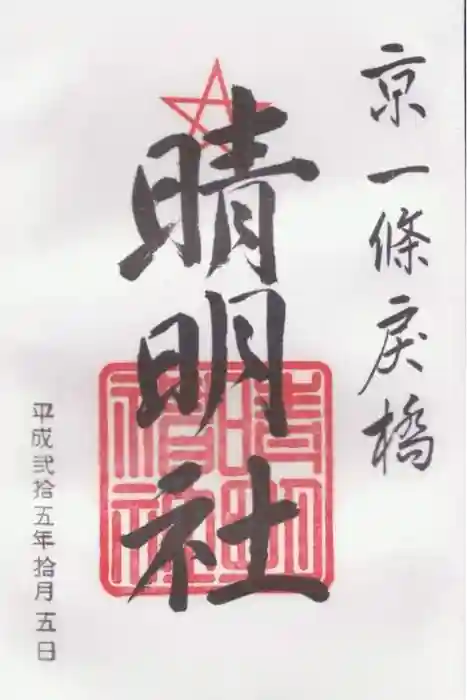 京一條戻橋
晴明社
晴明神社
平成弐拾五年拾月五日